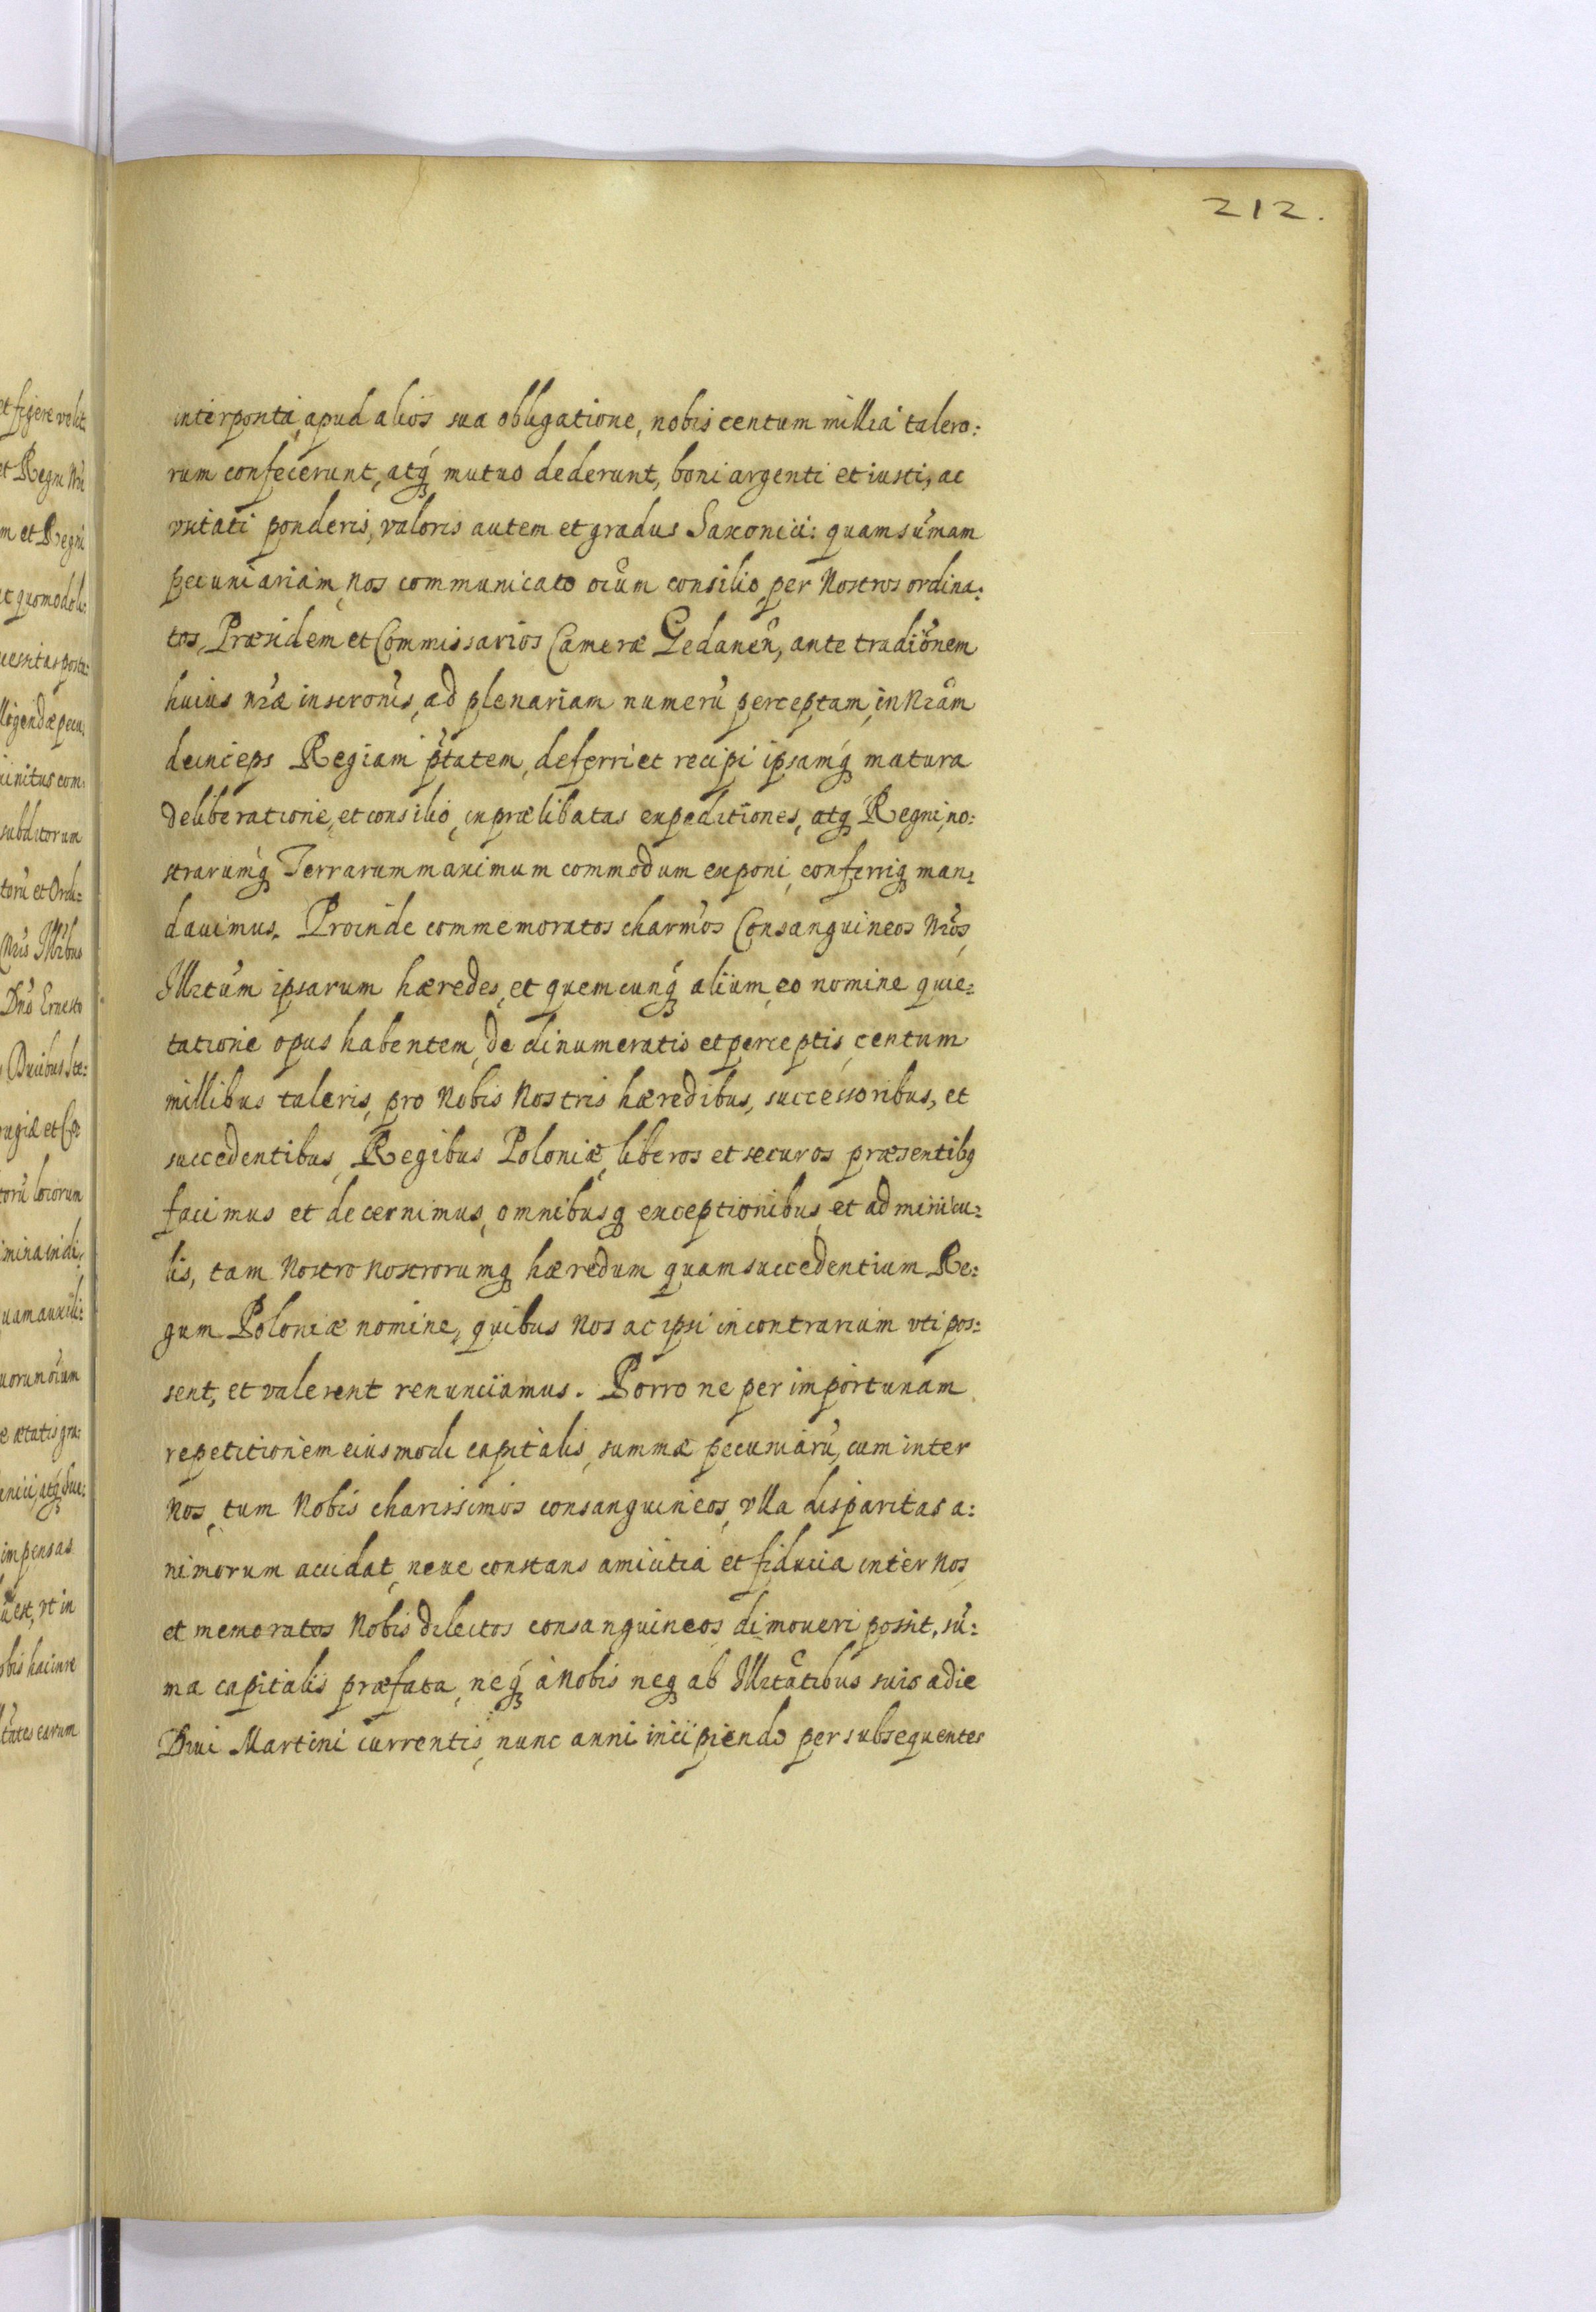 212.
interposita apud alios sua obligatione, nobis centum millia talero:
rum confecerunt, atq́ mutuo dederunt, boni argenti et iusti, ac
vsitati ponderis, valoris autem et gradus Saxonici: quam sum̃am
pecuniariam, nos communicato oium̃ consilio, per Nostros ordina:
tos, Præsidem et Commissarios Cameræ Gedaneñ, ante tradiõnem
huius nr̃æ inscroñis, ad plenariam numerũ perceptam, in Nr̃am
deinceps Regiam ptãtem, deferri et recipi ipsamq́ matura
deliberatione, et consilio, in prælibatas expeditiones, atq Regni, no:
strarumq́ Terrarum maximum commodum exponi, conferriq man:
dauimus. Proinde commemoratos charm̃os Consanguineos Nr̃os,
Illr̃tum ipsarum hæredes, et quemcunq́ alium, eo nomine quie:
tatione opus habentem, de dinumeratis et perceptis, centum
millibus taleris, pro Nobis Nostris hæredibus, successoribus, et
succedentibus, Regibus Poloniæ, liberos et securos præsentibq
facimus et decernimus, omnibusq exceptionibus, et adminicu:
lis, tam Nostro nostrorumq hæredum quam succedentium Re:
gum Poloniæ nomine, quibus Nos ac ipsi in contrarium vti pos:
sent, et valerent renunciamus. Porro ne per importunam
repetitionem eiusmodi capitalis, summæ pecuniarũ, cum inter
Nos, tum Nobis charissimos consanguineos, vlla disparitas a:
nimorum accidat, neue constans amicitia et fiducia inter Nos,
et memoratos Nobis dilectos consanguineos dimoueri possit, sũ:
ma capitalis præfata, neq́ à Nobis neq ab Illr̃tatibus suis a die
Diui Martini currentis, nunc anni incipiendo per subsequentes